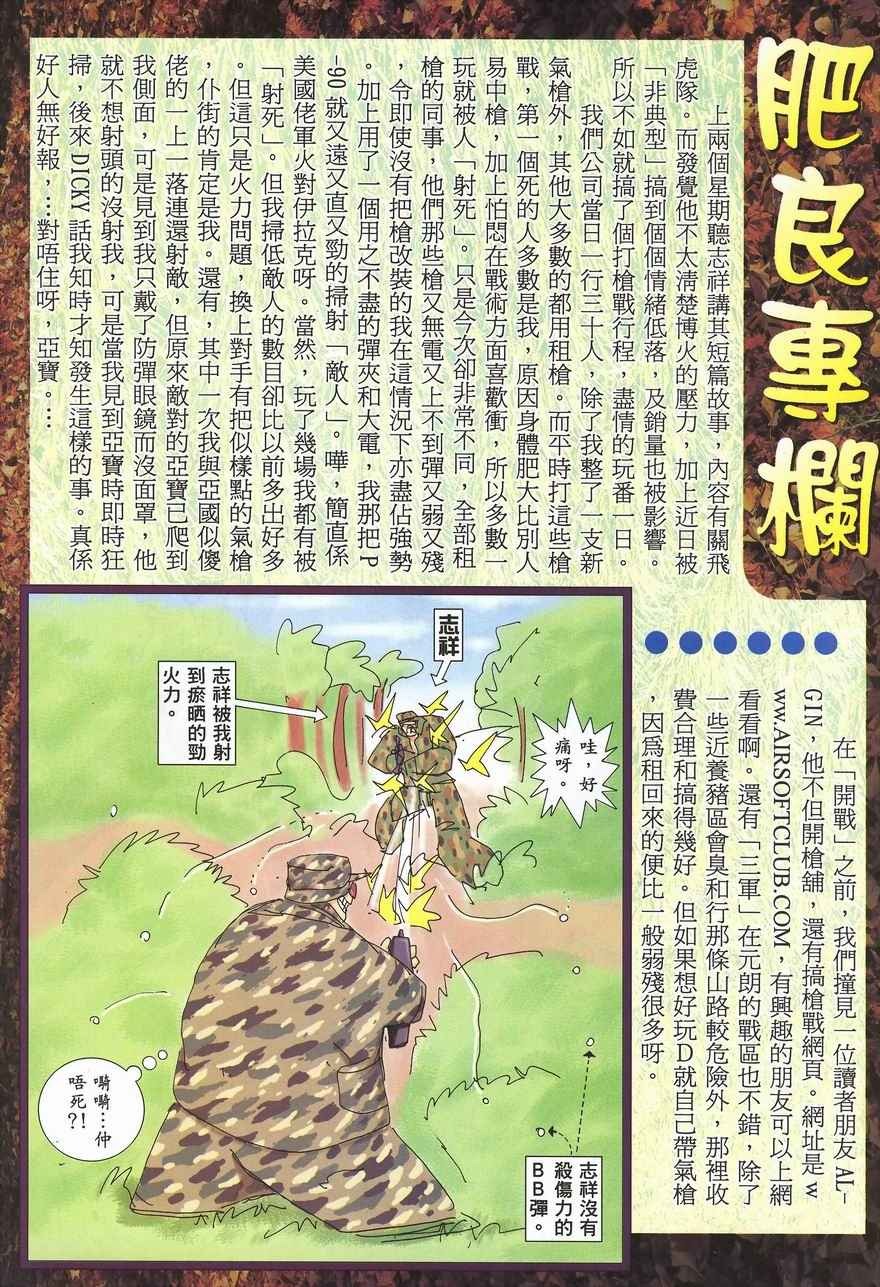 肥良專欄
上兩個星期聽志祥講其短篇故事，內容有關飛
虎隊。而發覺他不太清楚博火的壓力，加上近日被
「非典型」搞到個個情緒低落，及銷量也被影響。
所以不如就搞了個打槍戰行程，盡情的玩番一日。
我們公司當日一行三十人，除了我整了一支新
氣槍外，其他大多數的都用租槍。而平時打這些槍
戰，第一個死的人多數是我，原因身體肥大比別人
易中槍，加上怕悶在戰術方面喜歡衝，所以多數一
玩就被人「射死」。只是今次卻非常不同，全部租
槍的同事，他們那些槍又無電又上不到彈又弱又殘
，令即使沒有把槍改裝的我在這情況下亦盡佔強勢
。加上用了一個用之不盡的彈夾和大電，我那把P
-90就又遠又直又勁的掃射「敵人」。嘩，簡直係
美國佬軍火對伊拉克呀。當然，玩了幾場我都有被
「射死」。但我掃低敵人的數目卻比以前多出好多
。但這只是火力問題，換上對手有把似樣點的氣槍
，仆街的肯定是我。還有，其中一次我與亞國似傻
佬的一上一落連還射敵，但原來敵對的亞寶已爬到
我側面，可是見到我只戴了防彈眼鏡而沒面罩，他
就不想射頭的沒射我，可是當我見到亞寶時即時狂
掃，後來DICKY話我知時才知發生這樣的事。真係
好人無好報，…對唔住呀，亞寶。…
在「開戰」之前，我們撞見一位讀者朋友AL-
GIN，他不但開槍舖，還有搞槍戰網頁。網址是w
ww.AIRSOFTCLUB.COM，有興趣的朋友可以上網
看看啊。還有「三軍」在元朗的戰區也不錯，除了
一些近養豬區會臭和行那條山路較危險外，那裡收
費合理和搞得幾好。但如果想好玩D就自己帶氣槍
，因爲租回來的便比一般弱殘很多呀。
志祥
志祥被我射
到瘀晒的勁
火力。
哇，好
痛呀。
嘀嘀…仲
唔死?!
志祥沒有
殺傷力的
BB彈。